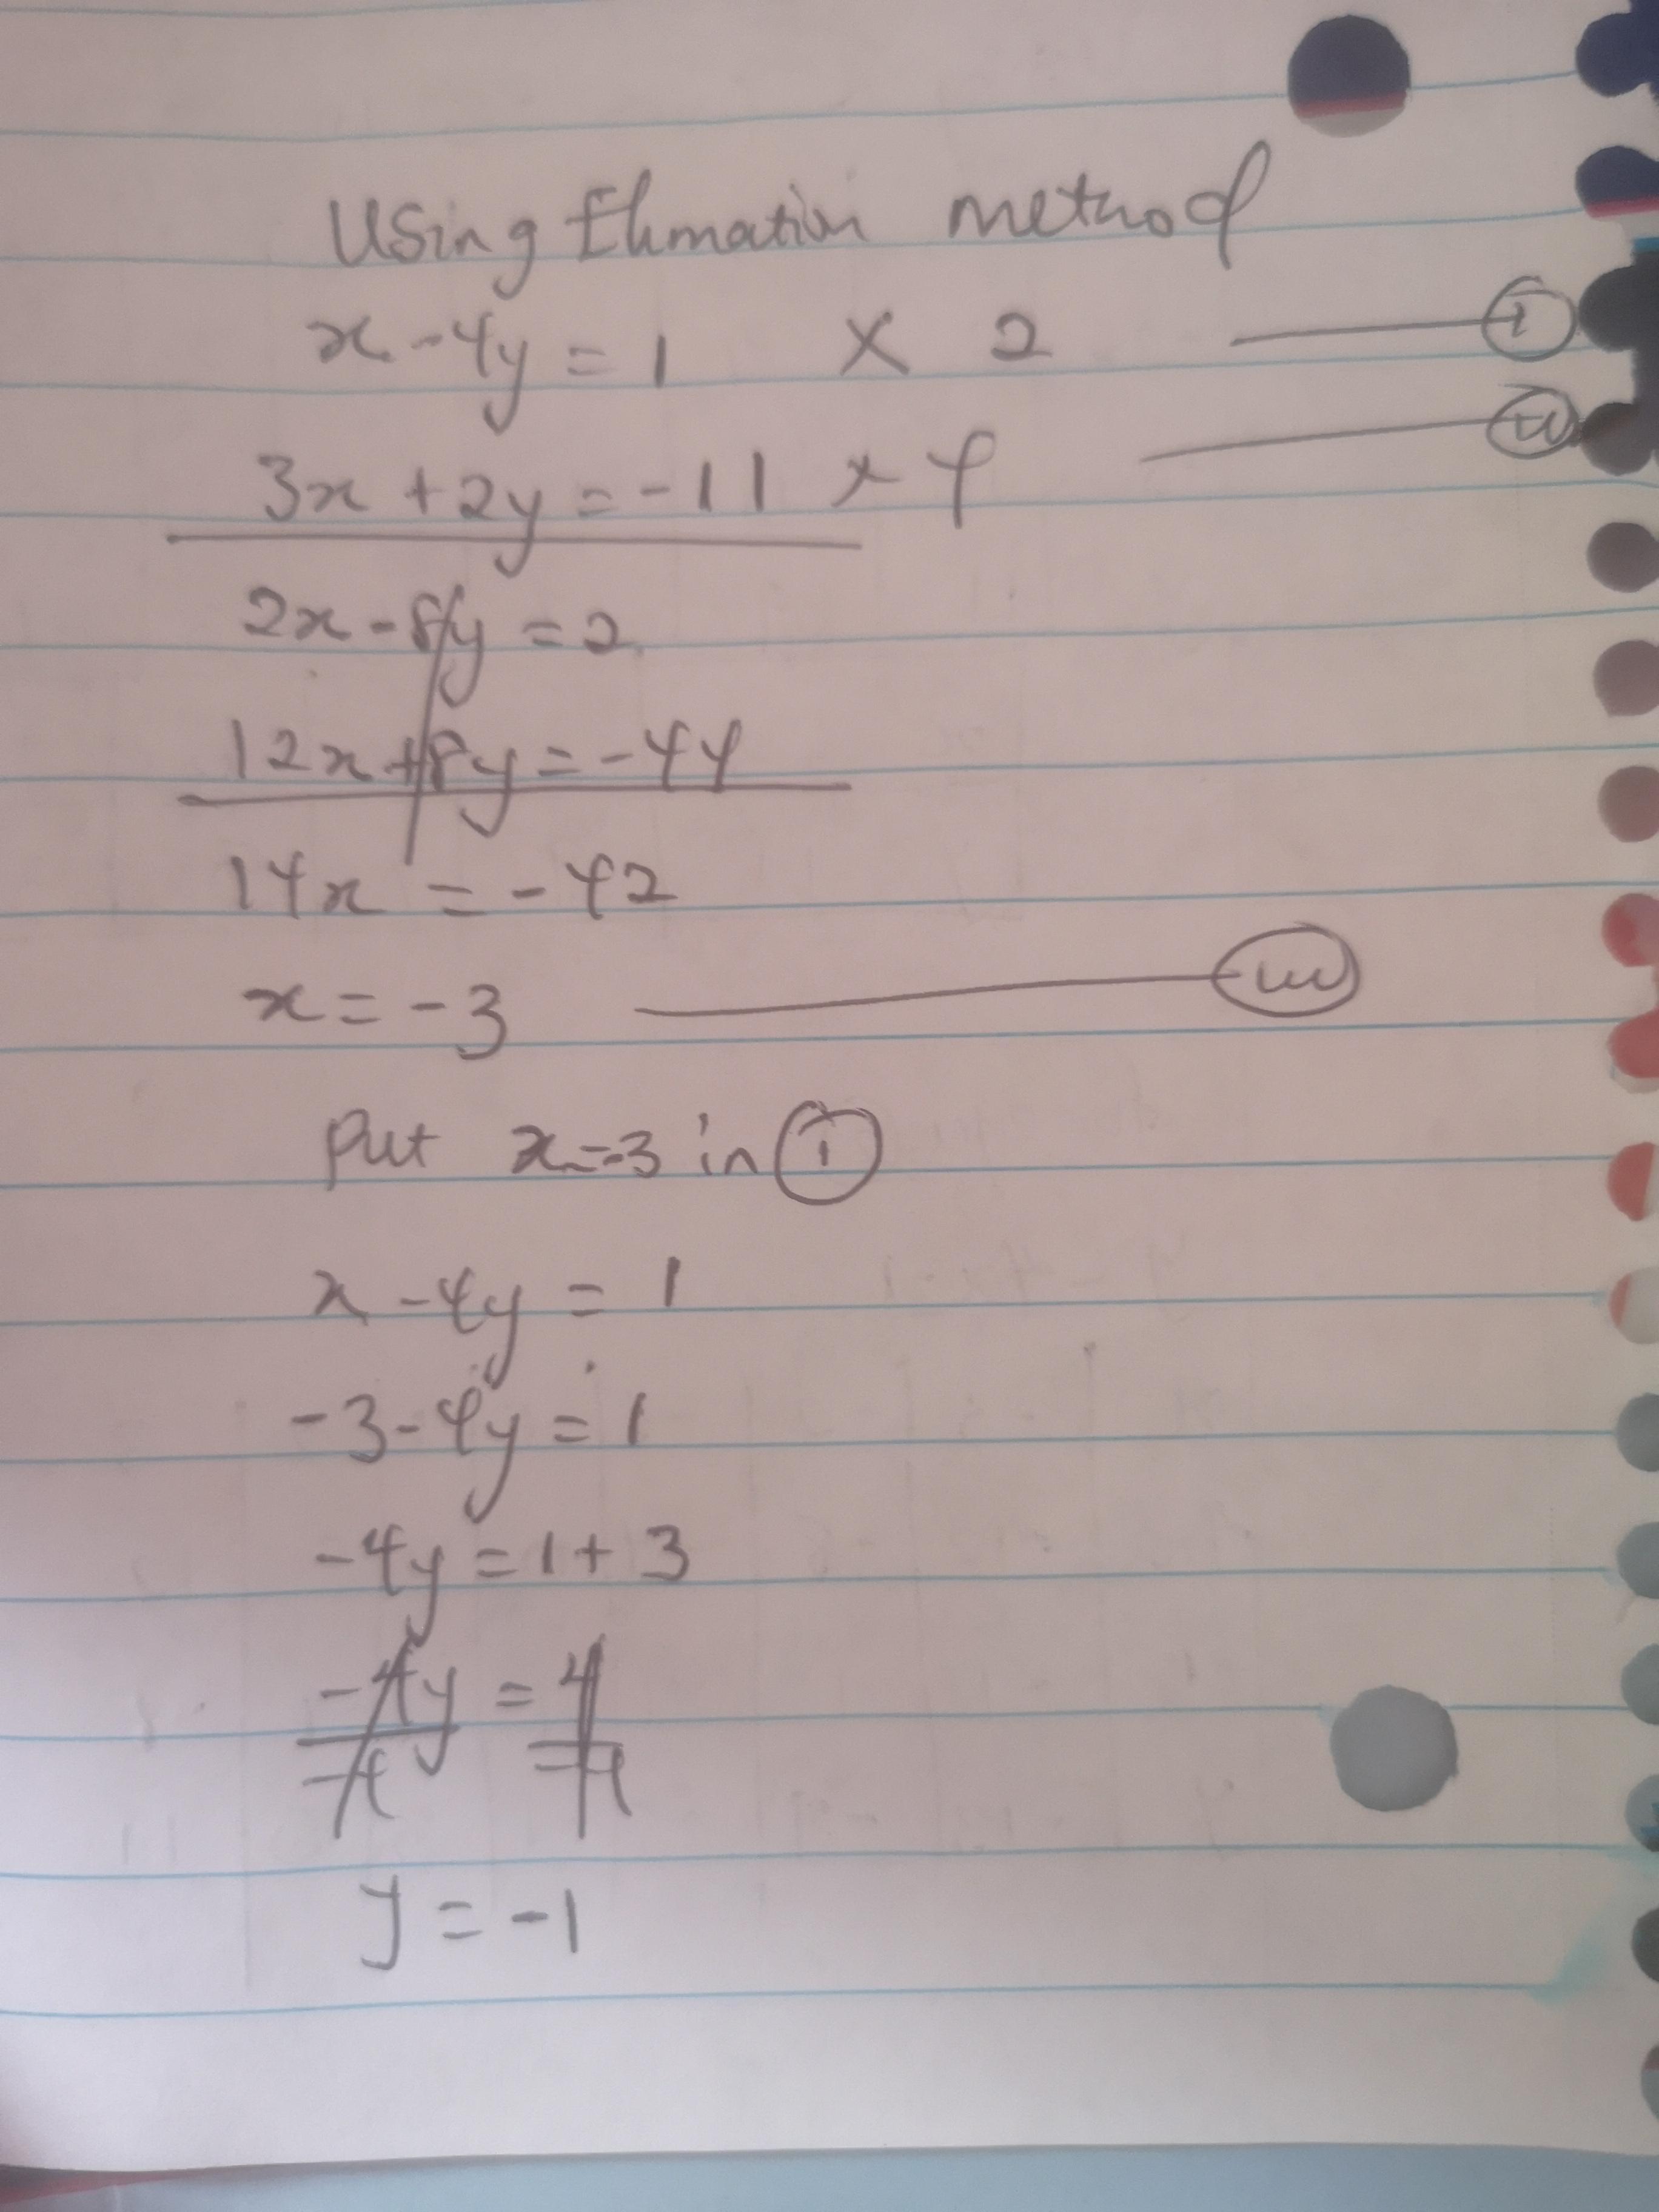 Using Elimation method
x - 4y = 1 × 2 —— (i)
3x + 2y = -11 × 4 —— (ii)
2x - 8y = 2
12x + 8y = -44
14x = -42
x = -3 —— (iii)
Put x = -3 in (i)
x - 4y = 1
-3 - 4y = 1
-4y = 1 + 3
-4y = 4
-4 -4
y = -1